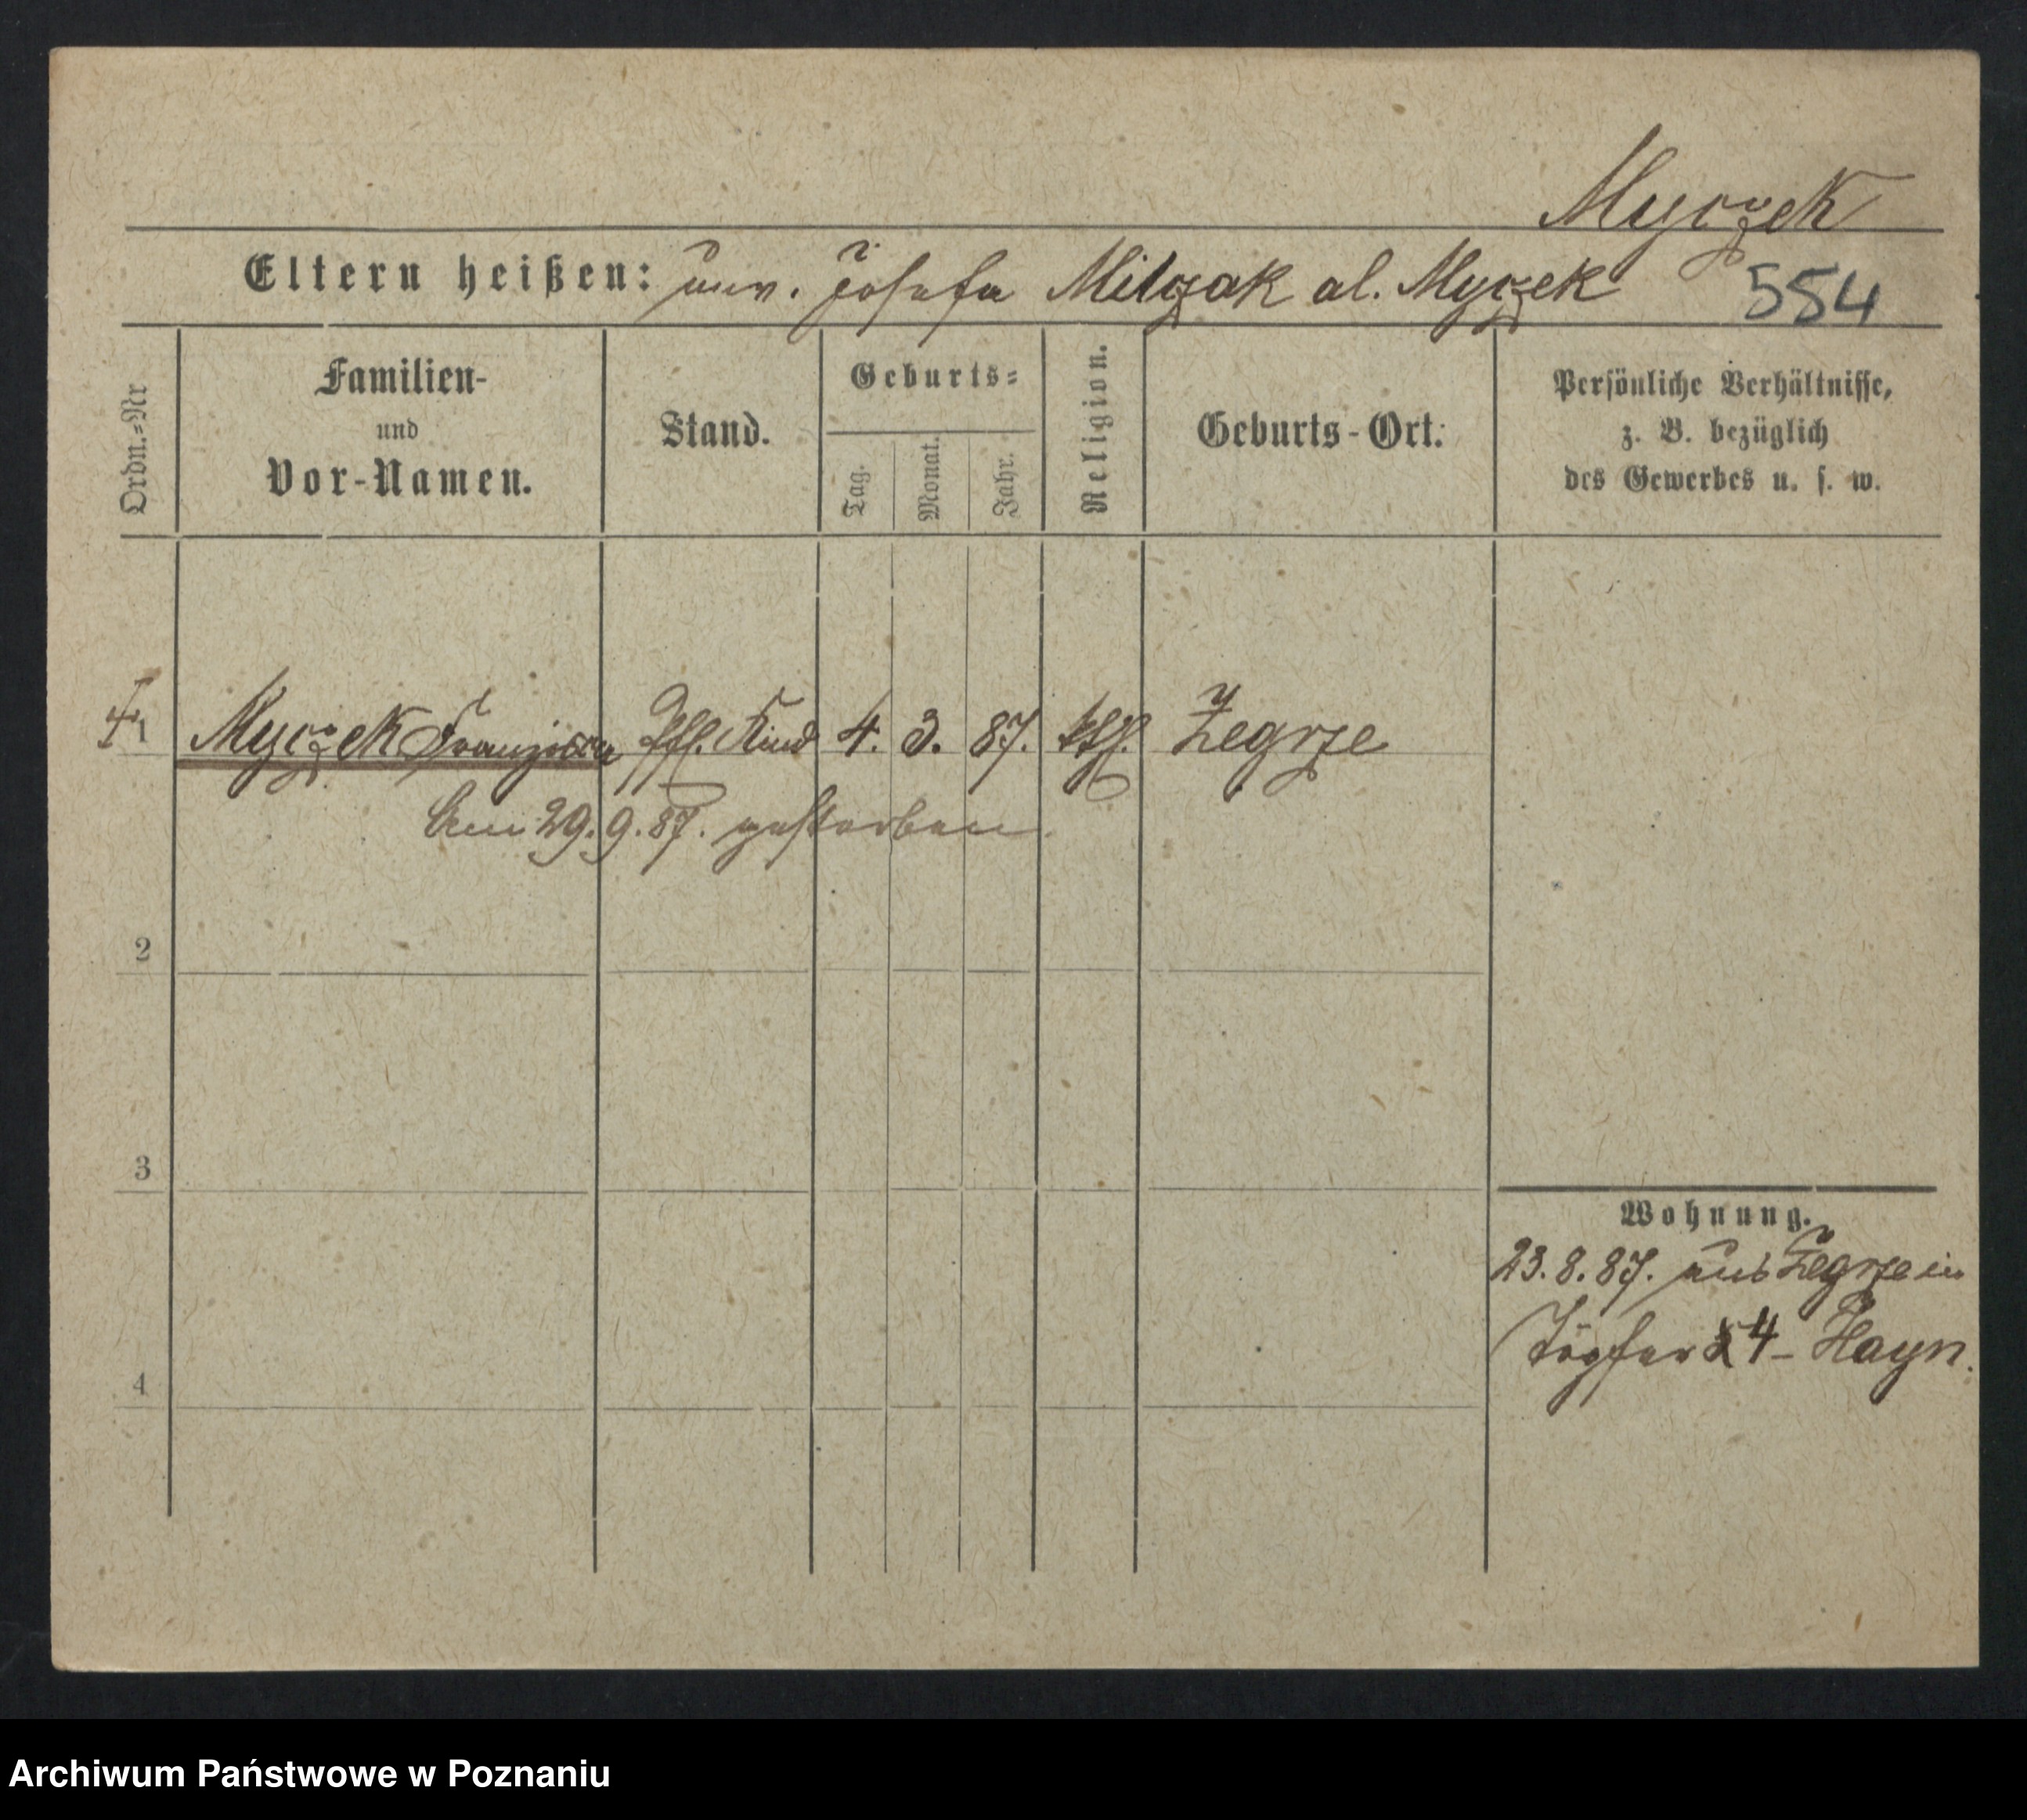 Myczek
Eltern heißen: unv. Josefa Milczak al. Myczek 554
Ordn.=Nr
Familien-
und
Vor-Namen.
Stand.
Geburts=
Tag.
Monat.
Jahr.
Religion.
Geburts-Ort.
Persönliche Verhältnisse,
z. B. bezüglich
des Gewerbes u. s. w.
1 Myczek Franziska Kind 4. 3. 87. kath. Zegrze
Am 29.9.87. gestorben.
2
3
Wohnung.
23.8.87. aus Zegrze in
Töpfer 4 - Hayn.
4
Archiwum Państwowe w Poznaniu